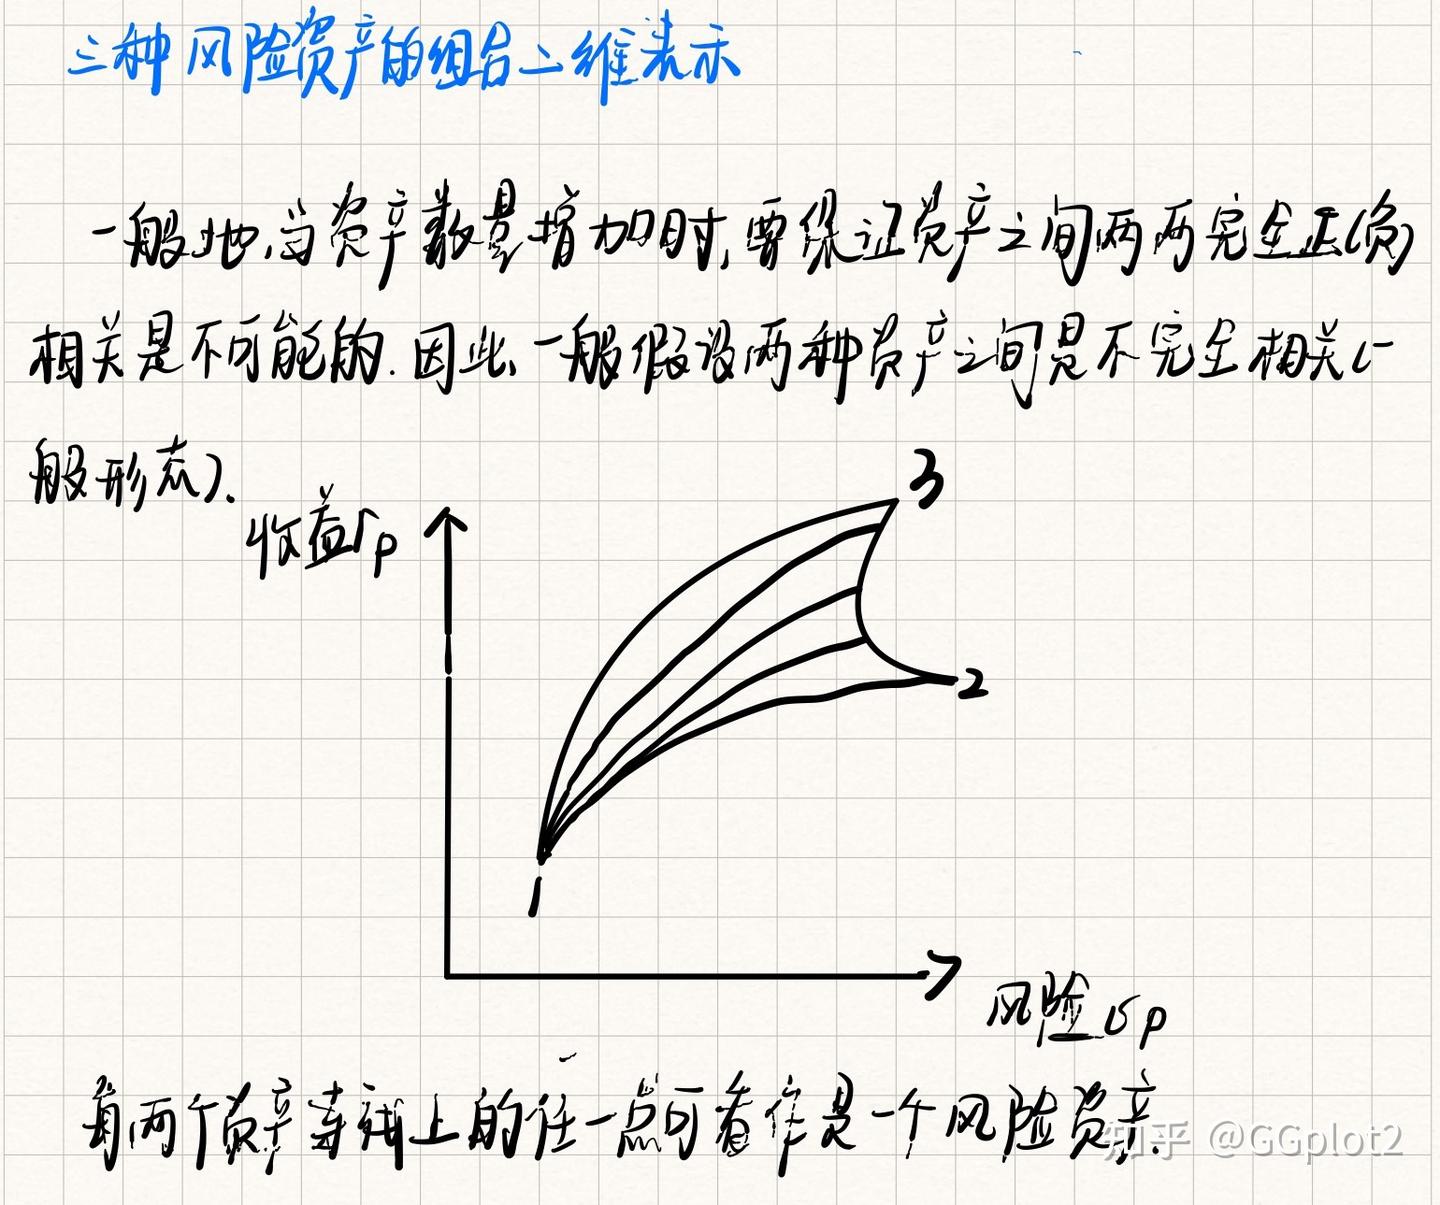 三种风险资产的组合二维表示
一般地,当资产数量增加时,要保证资产之间两两完全正(负)
相关是不可能的.因此,一般假设两种资产之间是不完全相关(一
般形态).
收益rp
3
2
1
风险σp
每两个资产连线上的任一点可看作是一个风险资产.
知乎 @GGplot2